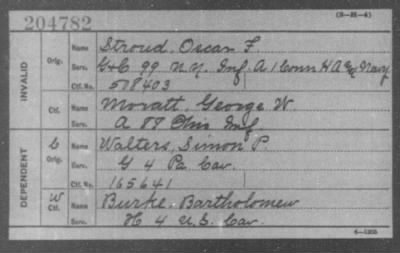 204782
(3-H-4)
INVALID
Orig.
Name Stroud, Oscar F.
Serv. G+C 99 N.Y. Inf. A 1 Conn H A Ex Navy
Ctf. No. 578403
Ctf.
Name Moratt, George W.
Serv. A 88 Ohio Inf
DEPENDENT
C
Orig.
Name Walters, Simon P.
Serv. G 4 Pa Cav.
Ctf. No. 165641
W
Ctf.
Name Burke, Bartholomew
Serv. H 4 U.S. Cav.